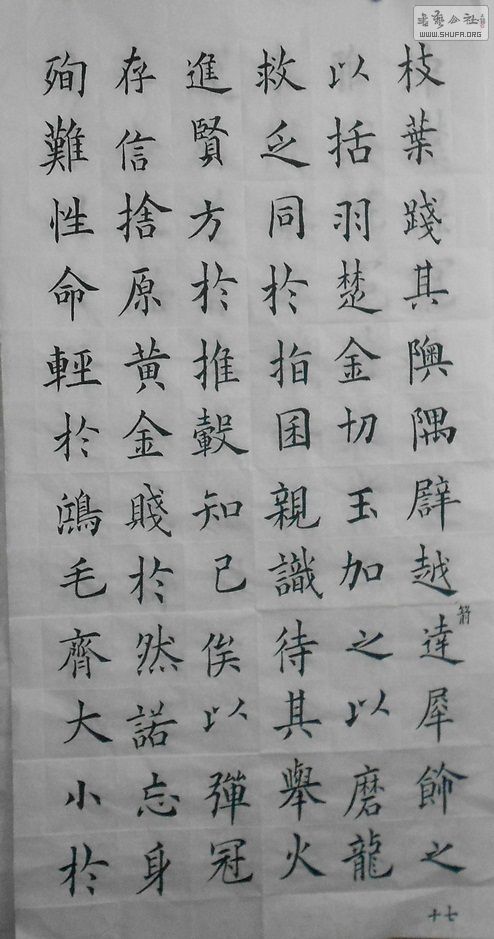 書藝公社
WWW.SHUFA.ORG
枝葉踐其隩隅辟越箭達犀飾之
以括羽楚金切玉加之以磨龍
救乏同於指囷親識待其舉火
進賢方於推轂知己俟以彈冠
存信捨原黃金賤於然諾忘身
殉難性命輕於鴻毛齊大小於
十七